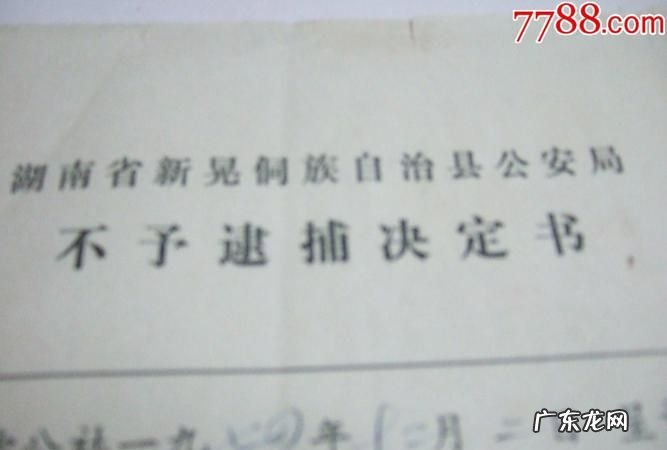 7788.com
湖南省新晃侗族自治县公安局
不予逮捕决定书
公社一九七四年十二月二日
广东龙网